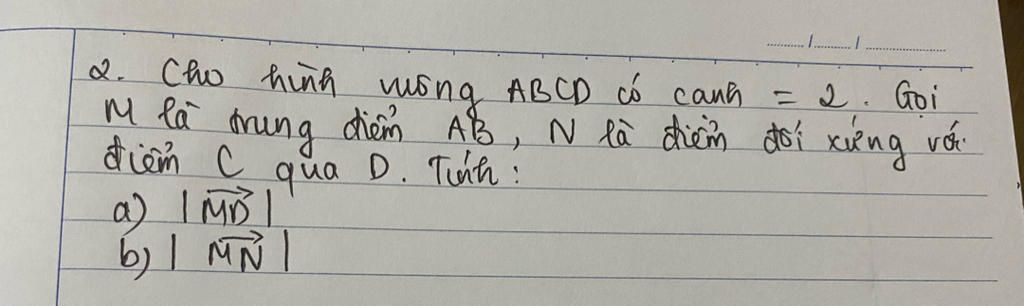 ............/............/........................
2. Cho hình vuông ABCD có cạnh = 2. Gọi
M là trung điểm AB, N là điểm đối xứng với
điểm C qua D. Tính:
a) |$\overrightarrow{MD}$|
b) |$\overrightarrow{MN}$|